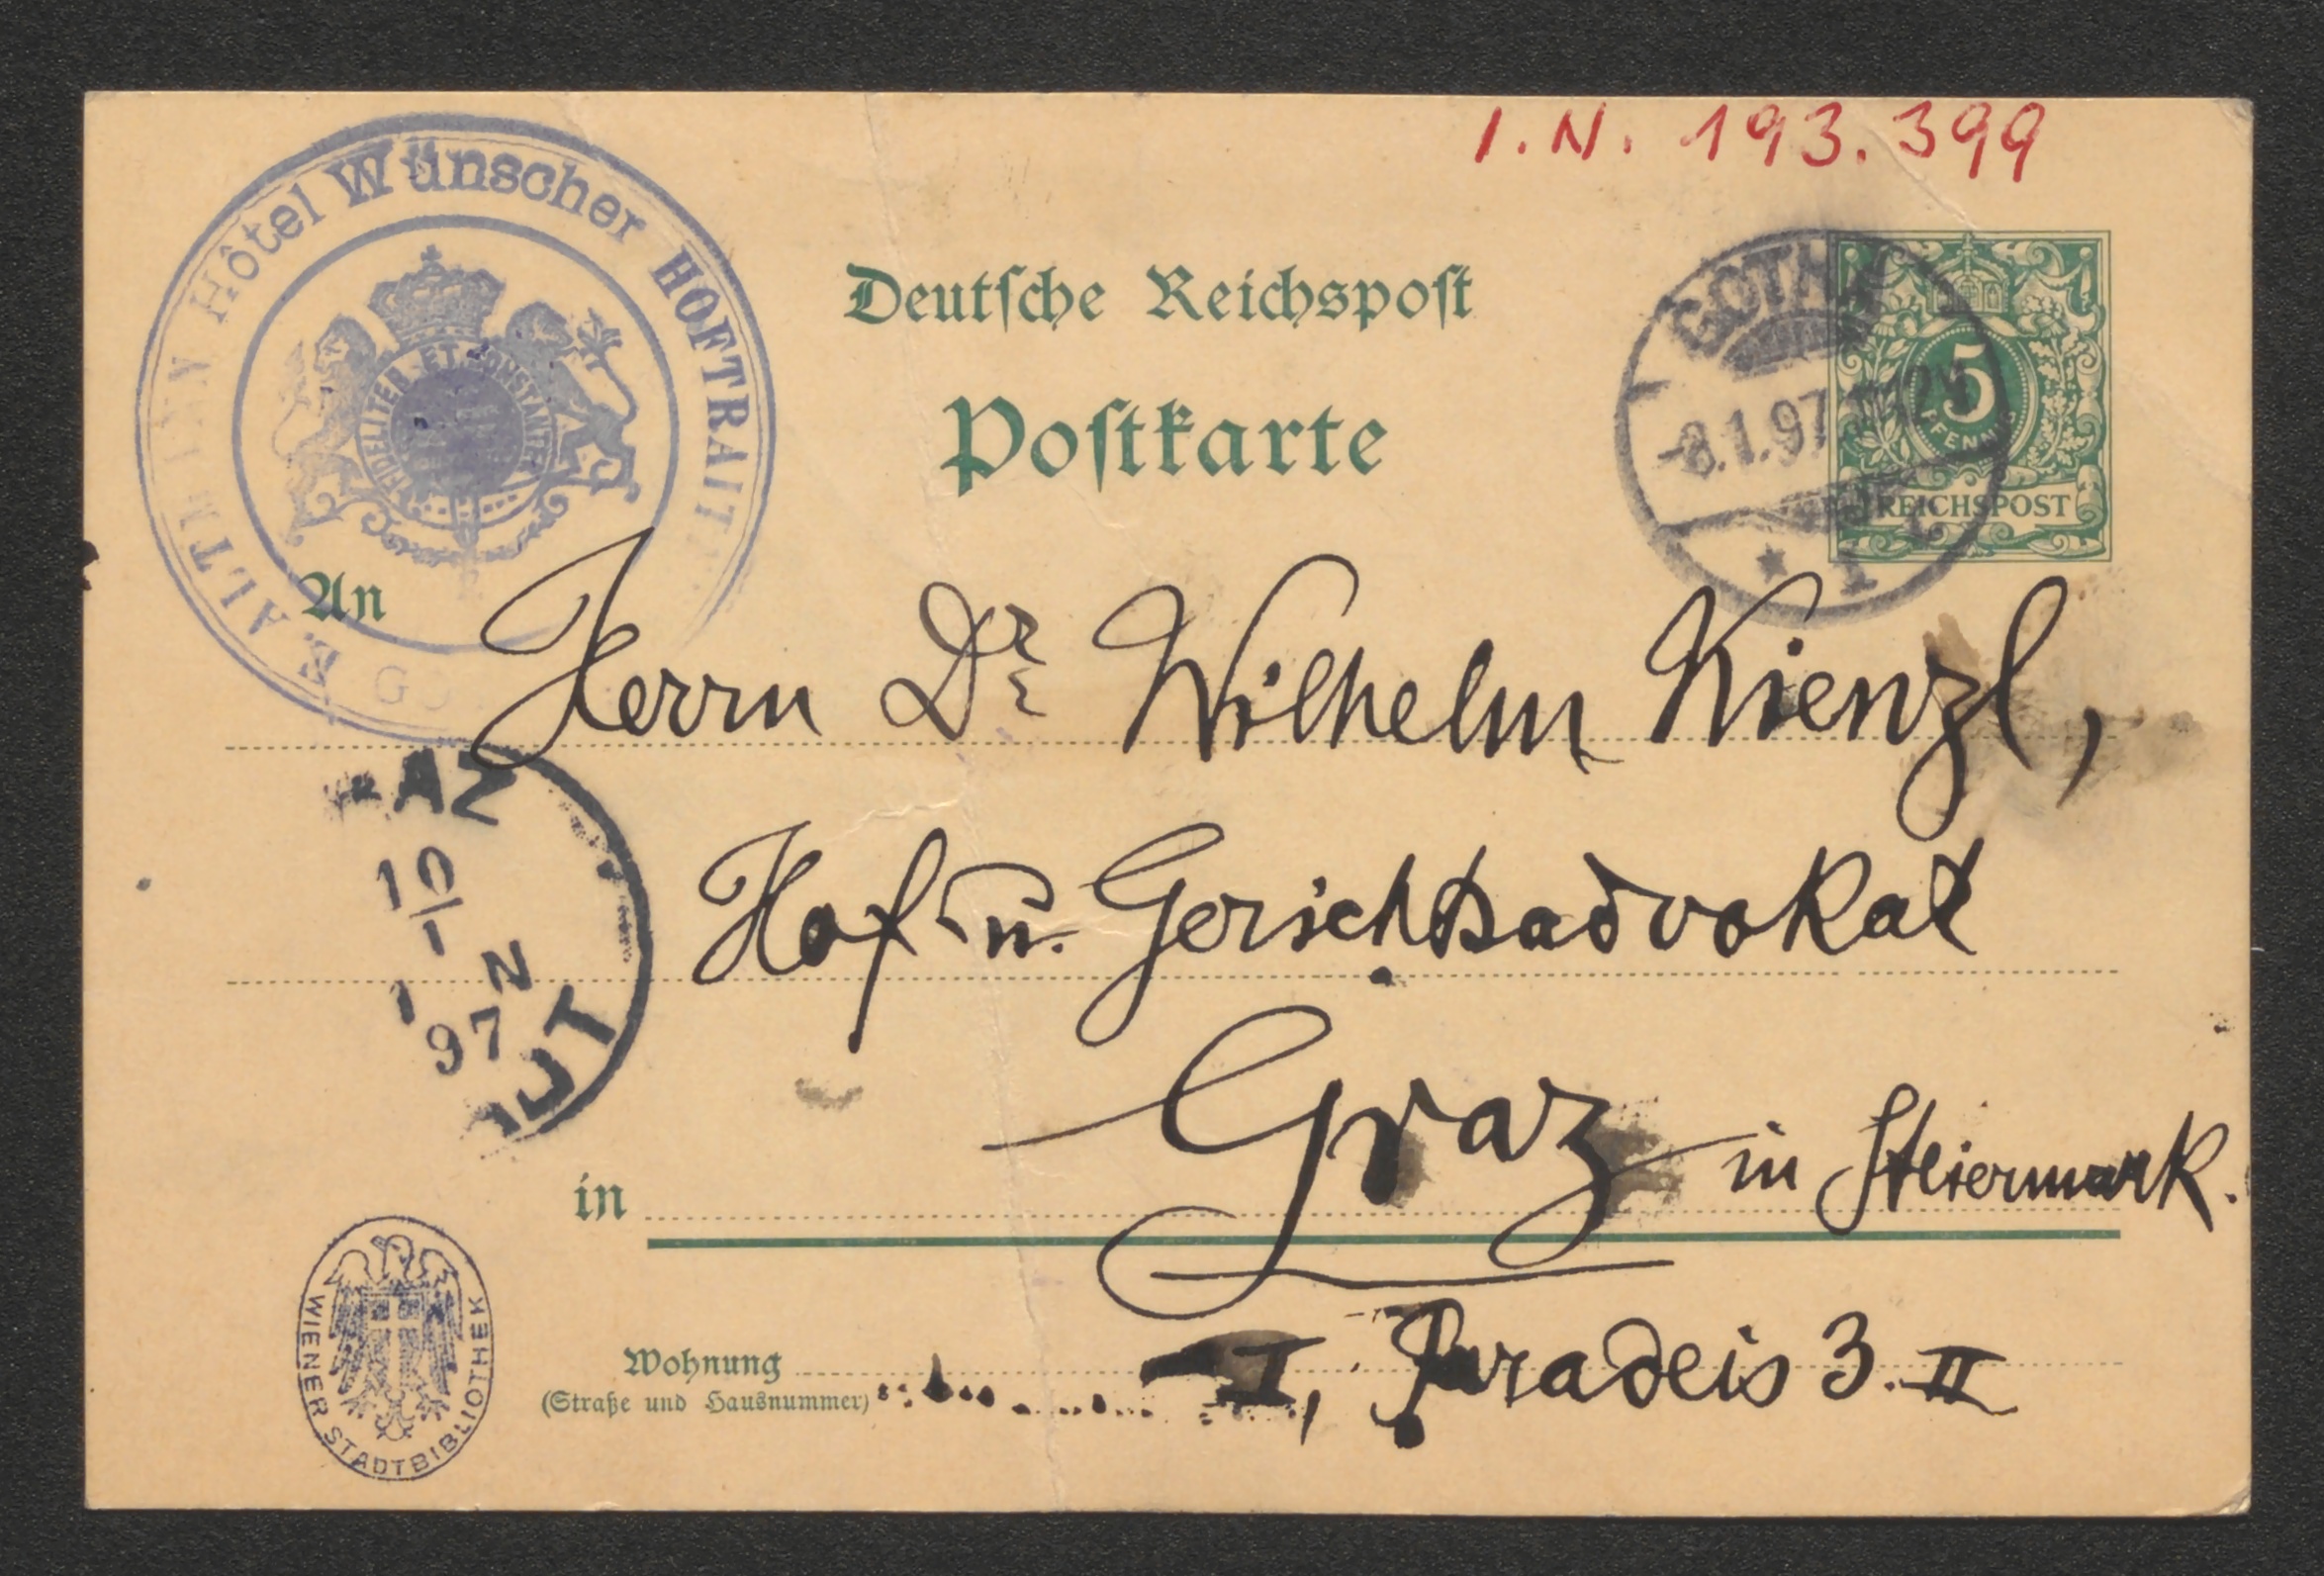 I.N. 193.399
Hôtel Wünscher HOFTRAIT
FIDELITER ET CONSTANTER
Deutsche Reichspost
Postkarte
GOTHA
-8.1.97
1
5
PFENNIG
REICHSPOST
An
Herrn Dr Wilhelm Kienzl,
Hof- u. Gerichtsadvokat
10/1
N
97
in Graz in Steiermark.
Wohnung
(Straße und Hausnummer)
I, Paradeis 3. II
WIENER STADTBIBLIOTHEK